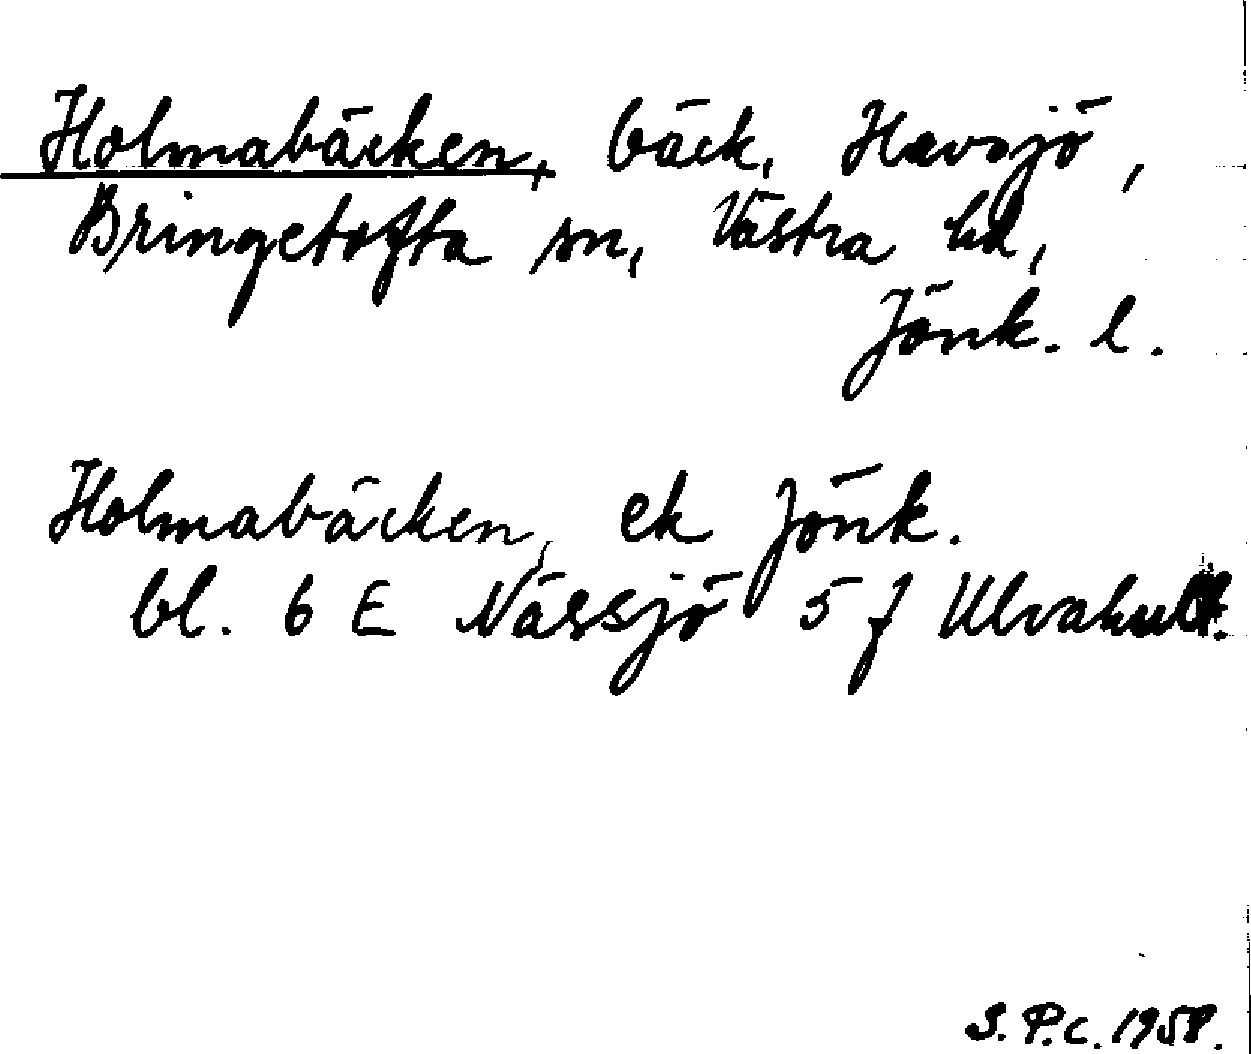 Holmabäcken, bäck, Havsjö,
Bringetofta sn, Västra hd,
Jönk. l.
Holmabäcken, ek Jönk.
bl. 6 E Nässjö 5 f Ulvahult.
S.P.C. 1958.